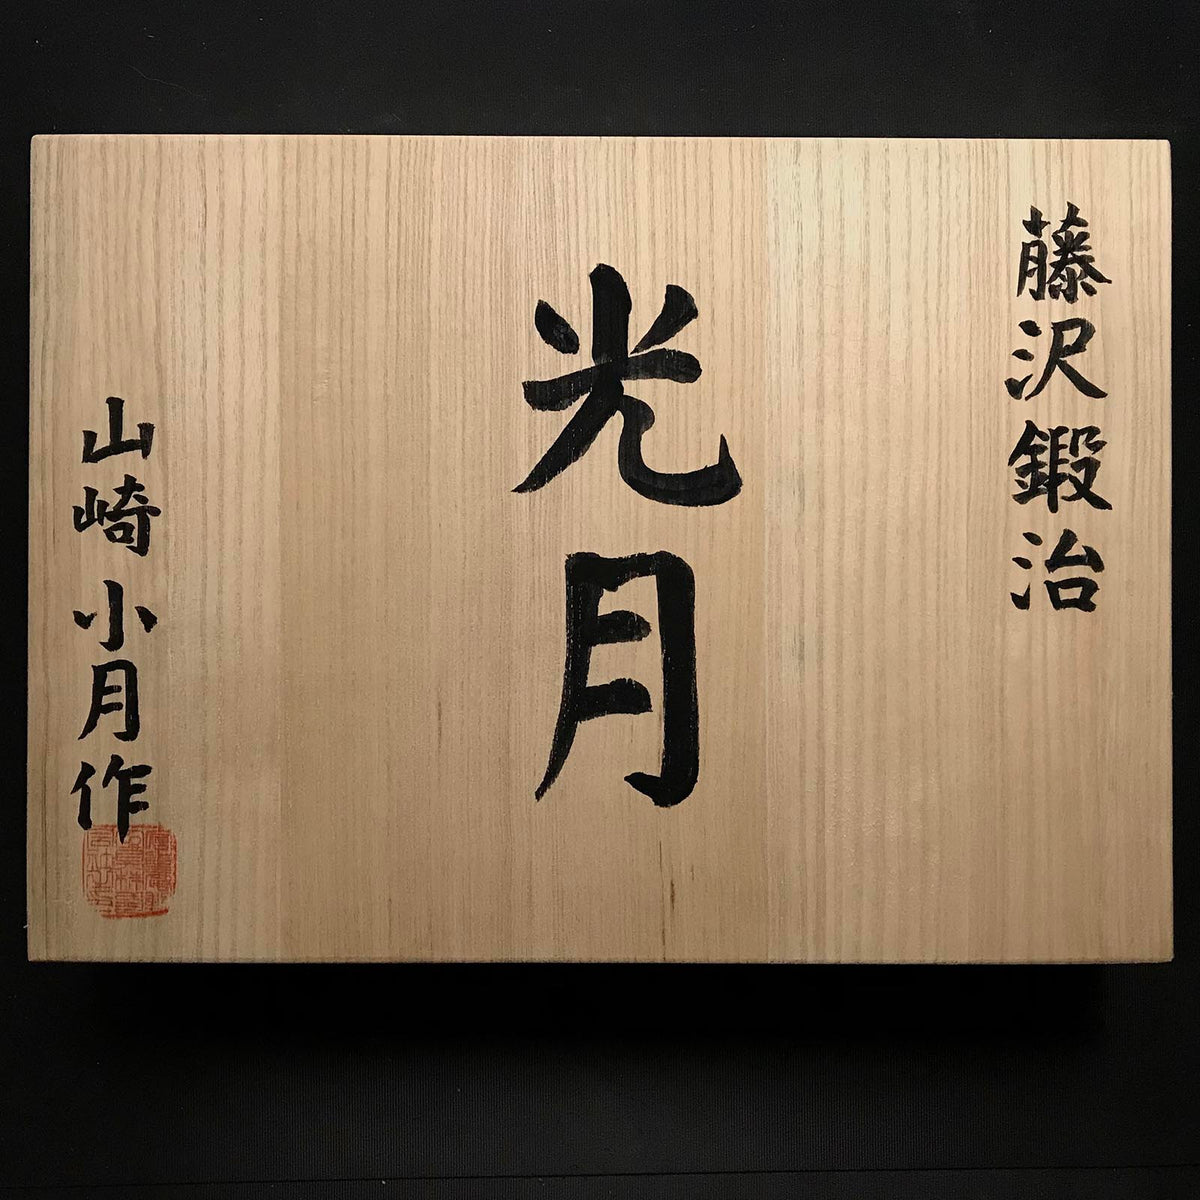 藤沢鍛治
光月
山崎小月作